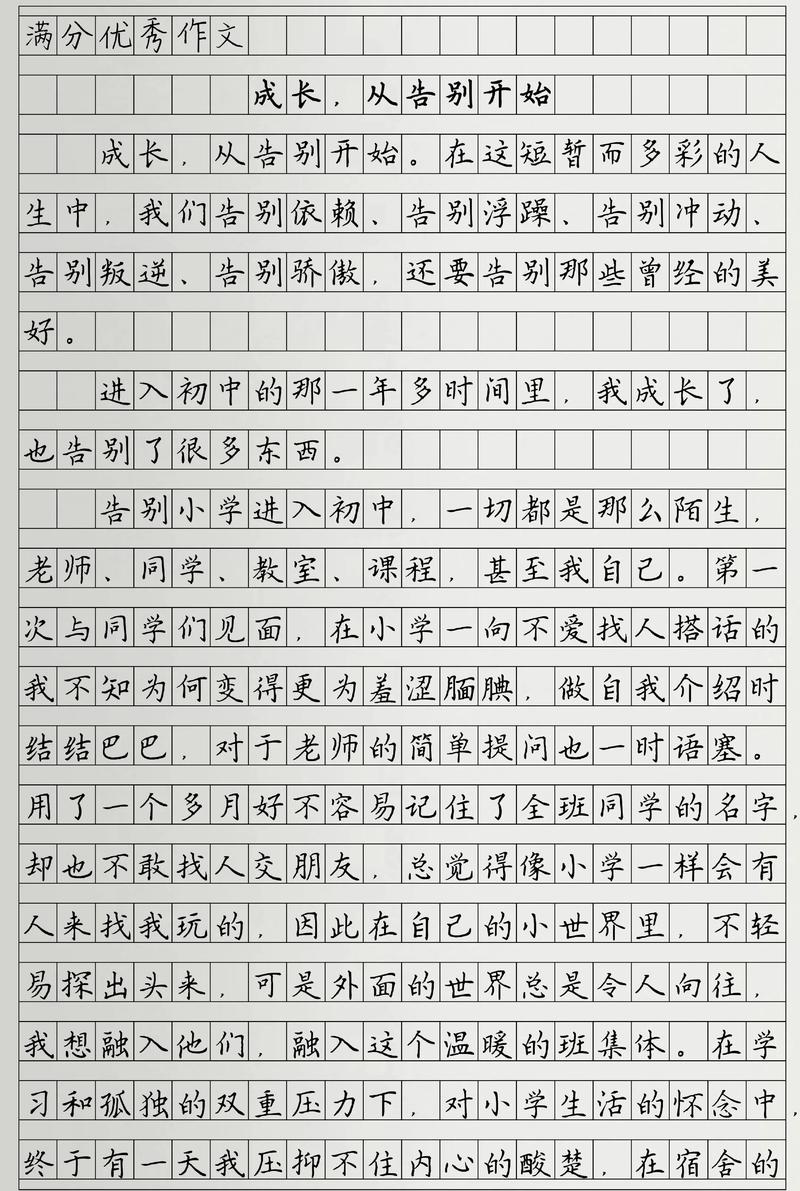 满分优秀作文
成长，从告别开始
成长，从告别开始。在这短暂而多彩的人
生中，我们告别依赖、告别浮躁、告别冲动、
告别叛逆、告别骄傲，还要告别那些曾经的美
好。
进入初中的那一年多时间里，我成长了，
也告别了很多东西。
告别小学进入初中，一切都是那么陌生，
老师、同学、教室、课程，甚至我自己。第一
次与同学们见面，在小学一向不爱找人搭话的
我不知为何变得更为羞涩腼腆，做自我介绍时
结结巴巴，对于老师的简单提问也一时语塞。
用了一个多月好不容易记住了全班同学的名字，
却也不敢找人交朋友，总觉得像小学一样会有
人来找我玩的，因此在自己的小世界里，不轻
易探出头来，可是外面的世界总是令人向往，
我想融入他们，融入这个温暖的班集体。在学
习和孤独的双重压力下，对小学生活的怀念中，
终于有一天我压抑不住内心的酸楚，在宿舍的